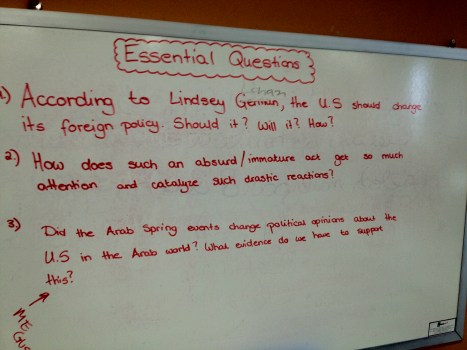 Essential Questions
1) According to Lindsey German, the U.S should change
its foreign policy. Should it? Will it? How?
2.) How does such an absurd/immature act get so much
attention and catalyze such drastic reactions?
3) Did the Arab Spring events change political opinions about the
U.S in the Arab world? What evidence do we have to support
this?